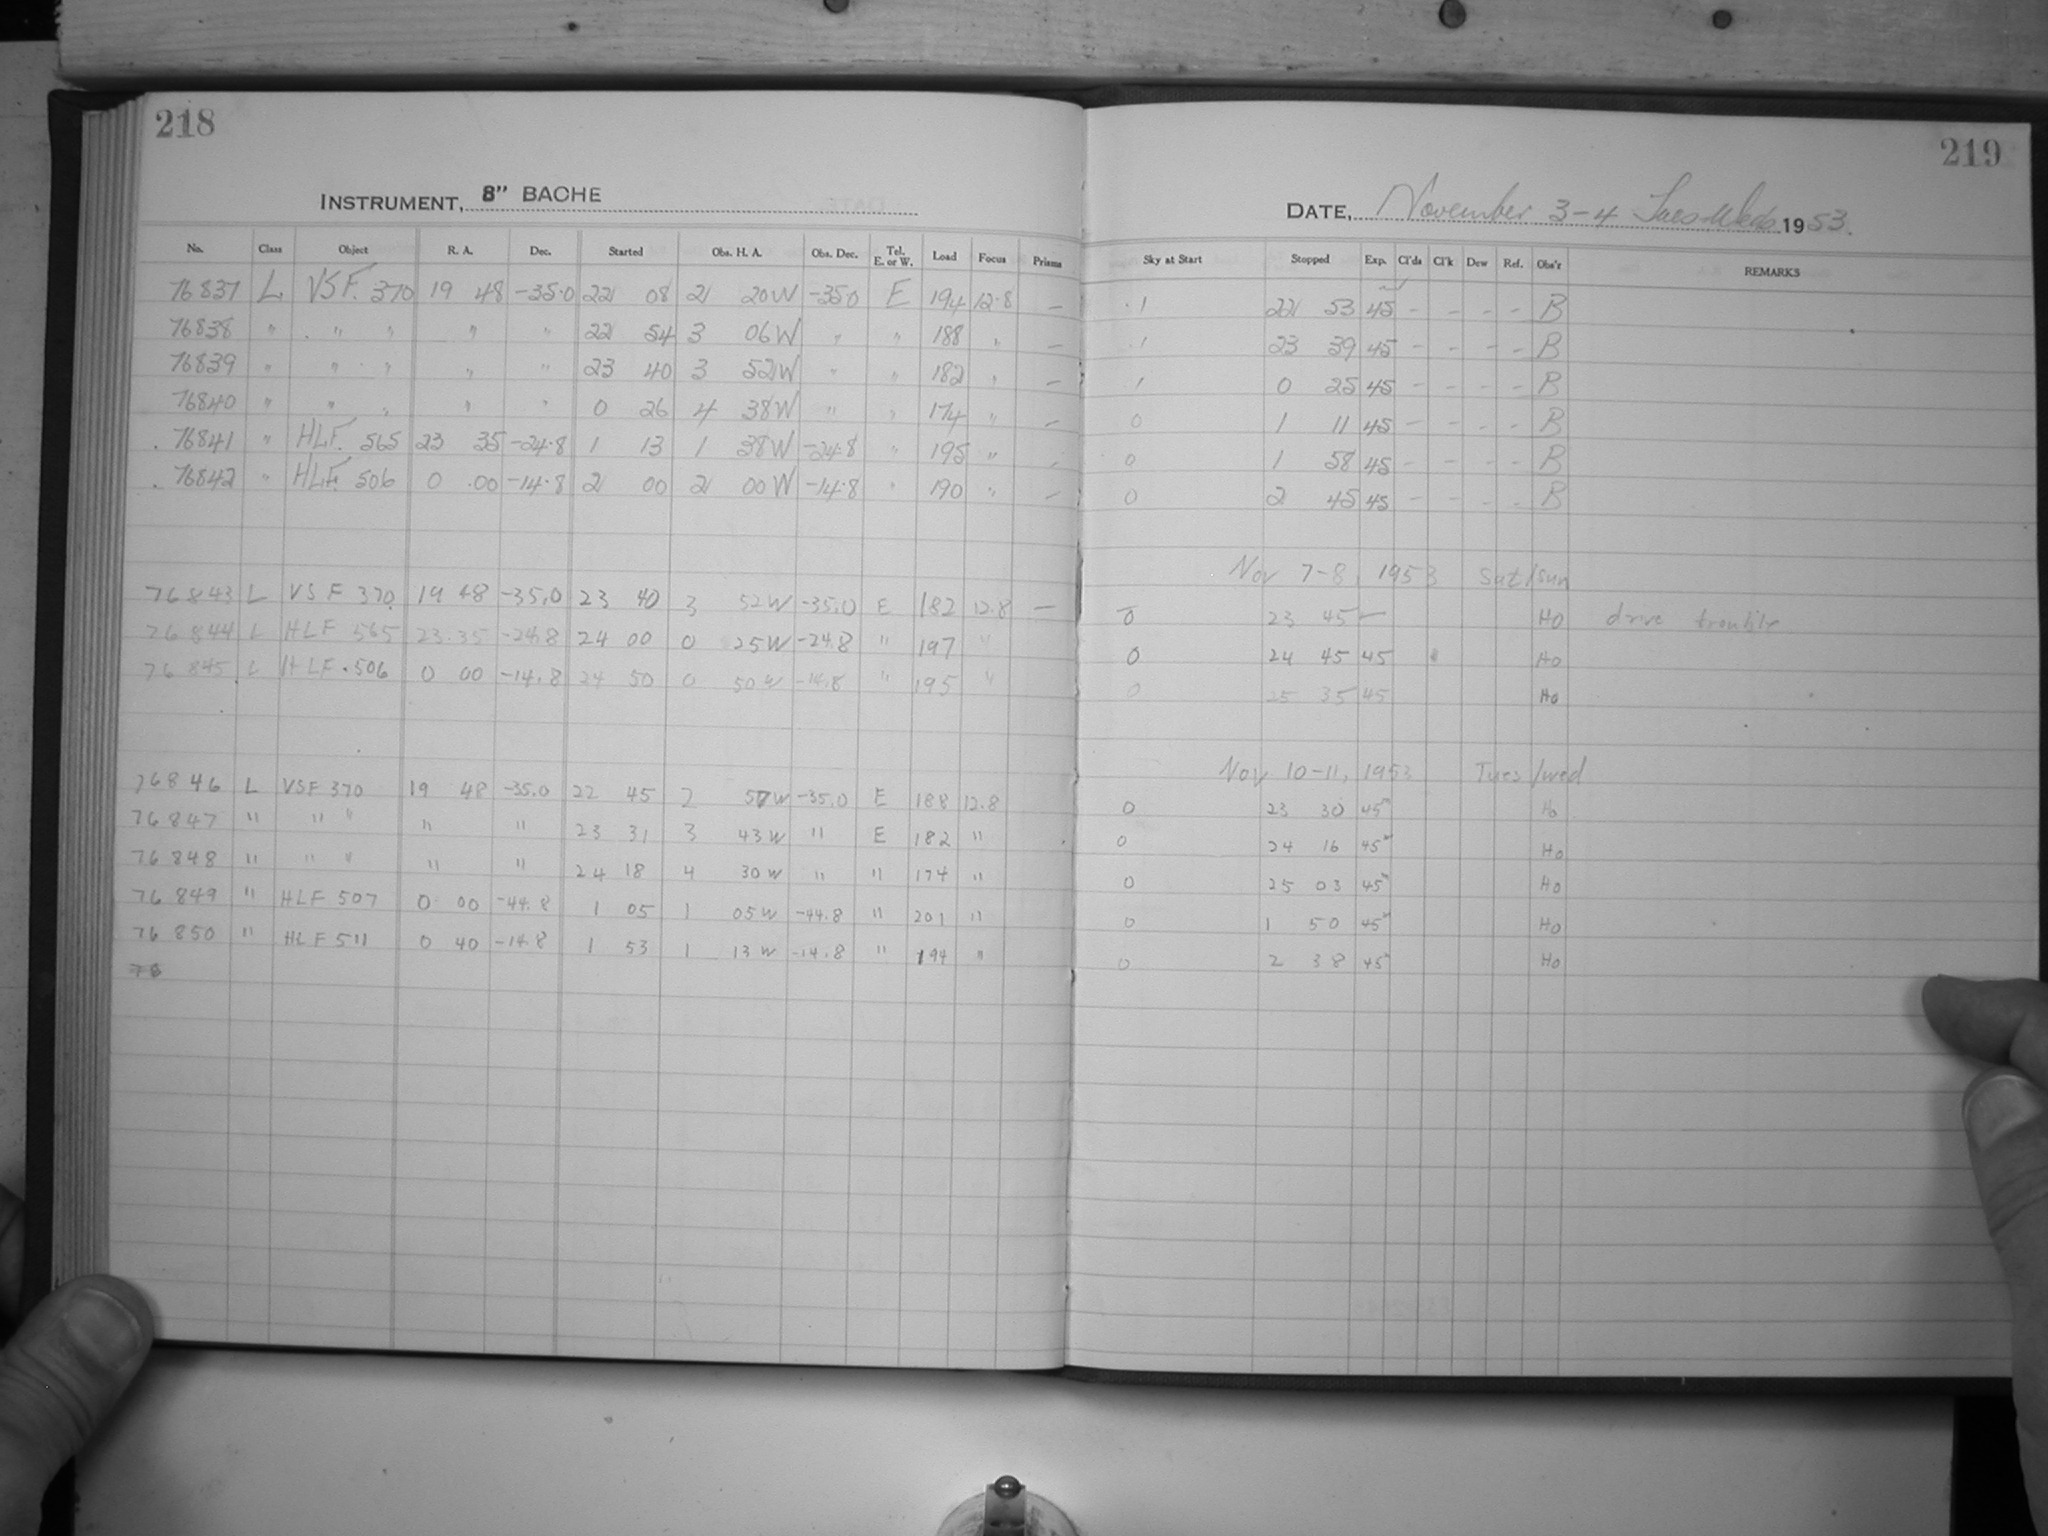 218
INSTRUMENT, 8" BACHE
No. Class Object R. A. Dec. Started Obs. H. A. Obs. Dec. Tel. E. or W. Load Focus Prisms
76837 L VSF. 370 19 48 -35.0 22 08 2 20W -35.0 E 194 12.8 —
76838 " " " " " 22 54 3 06W " " 188 " —
76839 " " " " " 23 40 3 52W " " 182 " —
76840 " " " " " 0 26 4 38W " " 174 " —
76841 " HLF. 565 23 35 -24.8 1 13 1 38W -24.8 " 195 " —
76842 " HLF. 506 0 00 -14.8 2 00 2 00W -14.8 " 190 " —
76843 L VSF 370 19 48 -35.0 23 40 3 52W -35.0 E 182 12.8 —
76844 L HLF 565 23.35 -24.8 24 00 0 25W -24.8 " 197 "
76845 L HLF.506 0 00 -14.8 24 50 0 50W -14.8 " 195 "
76846 L VSF 370 19 48 -35.0 22 45 2 57W -35.0 E 188 12.8
76847 " " " " " 23 31 3 43W " E 182 "
76848 " " " " " 24 18 4 30W " " 174 "
76849 " HLF 507 0 00 -44.8 1 05 1 05W -44.8 " 201 "
76850 " HLF 511 0 40 -14.8 1 53 1 13W -14.8 " 194 "
219
DATE, November 3-4 Tues-Weds 1953.
Sky at Start Stopped Exp. Cl'ds Cl'k Dew Ref. Obs'r REMARKS
.1 22 53 45 - - - - B
.1 23 39 45 - - - - B
1 0 25 45 - - - - B
0 1 11 45 - - - - B
0 1 58 45 - - - - B
0 2 45 45 - - - - B
Nov 7-8, 1953 Sat/Sun
0 23 45 — HO drive trouble
0 24 45 45 HO
0 25 35 45 HO
Nov 10-11, 1953 Tues/wed
0 23 30 45m HO
0 24 16 45m HO
0 25 03 45m HO
0 1 50 45m HO
0 2 38 45m HO